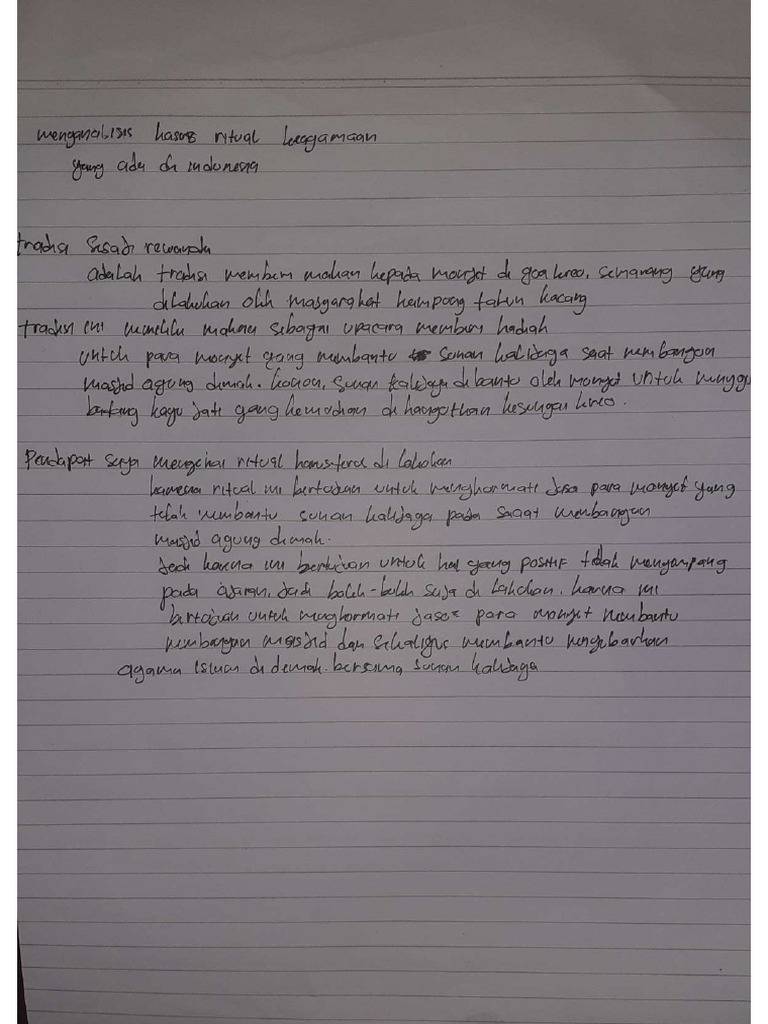 menganalisis kasus ritual keagamaan
yang ada di indonesia
tradisi Sesaji rewanda
adalah tradisi memberi makan kepada monyet di goa kreo, semarang yang
dilakukan oleh masyarakat kampong talun kacang
tradisi ini memiliki makna sebagai upacara memberi hadiah
untuk para monyet yang membantu sunan kalijaga saat membangun
masjid agung demak. konon, sunan kalijaga dibantu oleh monyet untuk
kayu jati yang kemudian di hanyutkan kesungai kreo.
Pendapat saya mengenai ritual harus terus di lakukan
karena ritual ini bertujuan untuk menghormati jasa para monyet yang
telah membantu sunan kalijaga pada saat membangun
masjid agung demak.
Jadi karena ini bertujuan untuk hal yang positif tidak menyimpang
pada ajaran, jadi boleh-boleh saja di lakukan, karena ini
bertujuan untuk menghormati jasa para monyet membantu
membangun masjid dan sekaligus membantu menyebarkan
agama islam di demak bersama sunan kalijaga